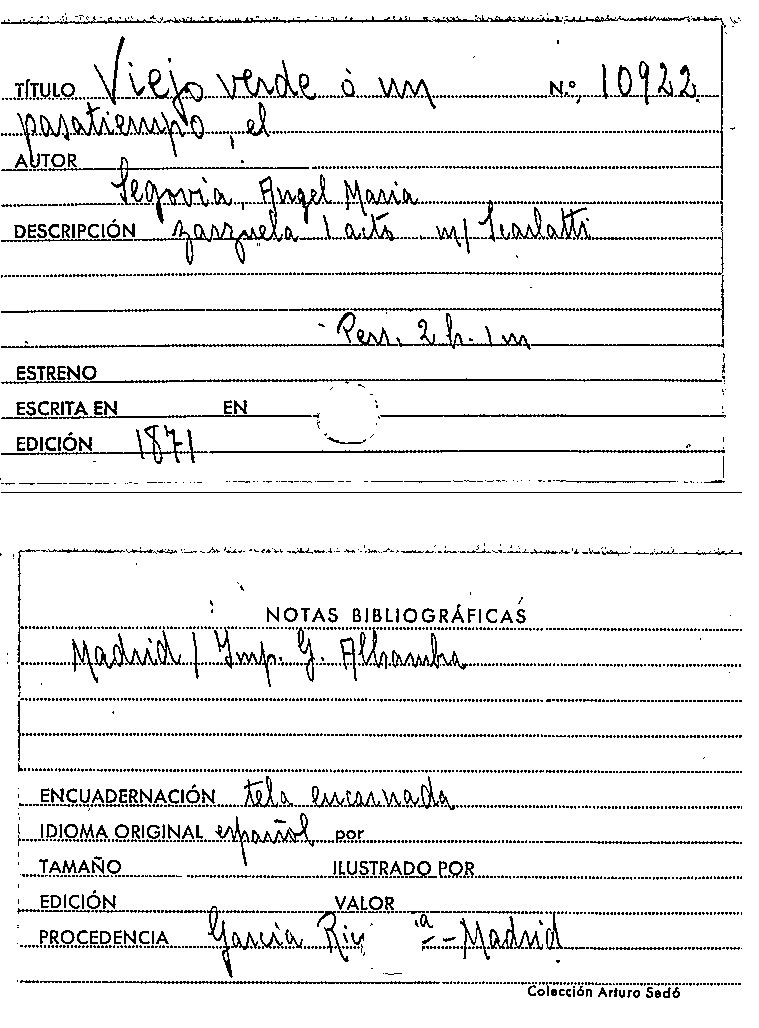 TÍTULO Viejo verde ó un N.º, 10922
pasatiempo, el
AUTOR
Segovia, Angel Maria
DESCRIPCIÓN zarzuela 1 acto m/ Scarlatti
Pers. 2 h. 1 m
ESTRENO
ESCRITA EN EN
EDICIÓN 1871
NOTAS BIBLIOGRÁFICAS
Madrid / Imp. G. Alhambra
ENCUADERNACIÓN tela encarnada
IDIOMA ORIGINAL español por
TAMAÑO ILUSTRADO POR
EDICIÓN VALOR
PROCEDENCIA García - Madrid
Colección Arturo Sedó